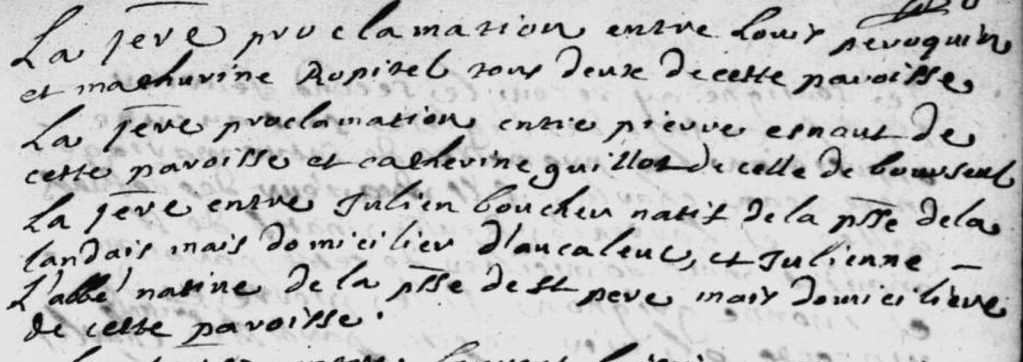 La 1ere proclamation entre Louis peroquin
et mathurine Ropitel tous deux de cette paroisse.
La 1ere proclamation entre pierre esnaut de
cette paroisse et catherine guillot de celle de bourseul
La 1ere entre Julien boucher natif de la psse de la
landais mais domicilier d'aucaleuc, et Julienne
L'abbé native de la psse de St pere mais domiciliere
de cette paroisse.